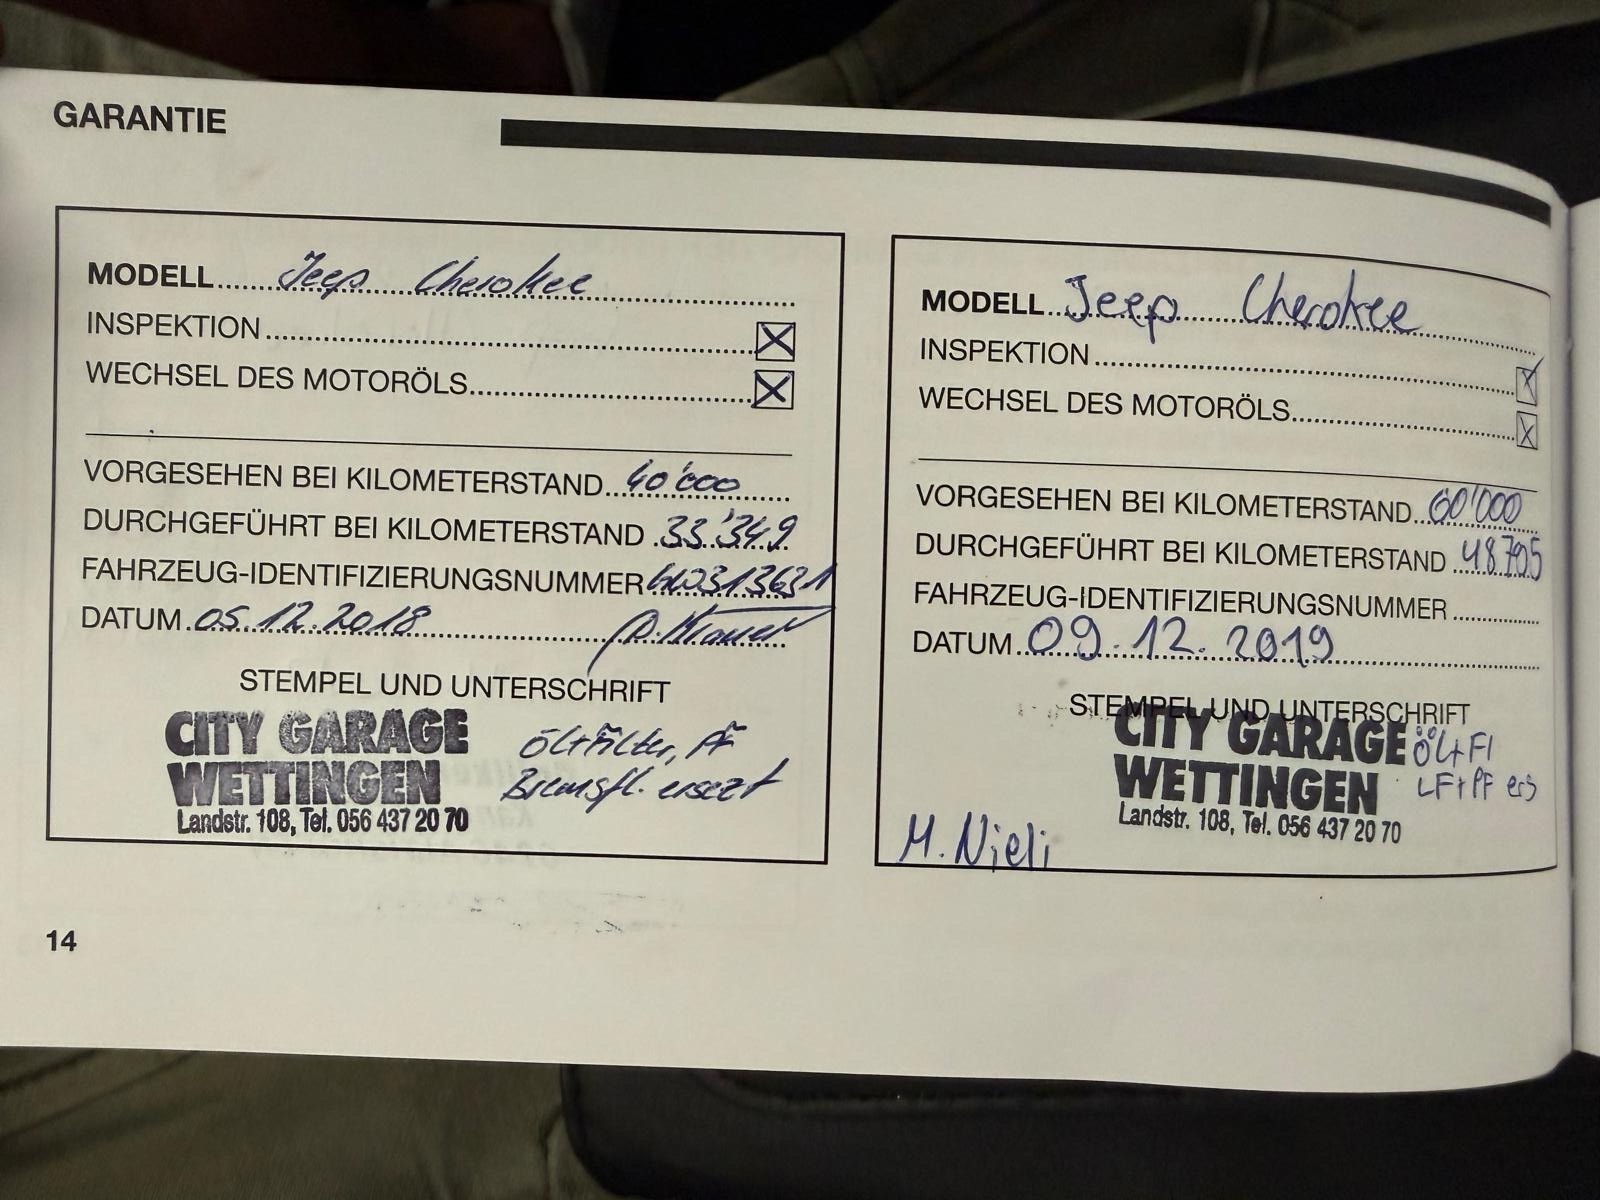 GARANTIE
MODELL Jeep Cherokee
INSPEKTION ☒
WECHSEL DES MOTORÖLS ☒
VORGESEHEN BEI KILOMETERSTAND 40'000
DURCHGEFÜHRT BEI KILOMETERSTAND 33'349
FAHRZEUG-IDENTIFIZIERUNGSNUMMER
DATUM 05.12.2018
STEMPEL UND UNTERSCHRIFT
CITY GARAGE
WETTINGEN
Landstr. 108, Tel. 056 437 20 70
Öl+Filter, PF
Bremsfl. ersezt
14
MODELL Jeep Cherokee
INSPEKTION ☒
WECHSEL DES MOTORÖLS ☒
VORGESEHEN BEI KILOMETERSTAND 60'000
DURCHGEFÜHRT BEI KILOMETERSTAND 48705
FAHRZEUG-IDENTIFIZIERUNGSNUMMER
DATUM 09.12.2019
STEMPEL UND UNTERSCHRIFT
CITY GARAGE
WETTINGEN
Landstr. 108, Tel. 056 437 20 70
Öl+FI
LF+PF ers
M. Nieli